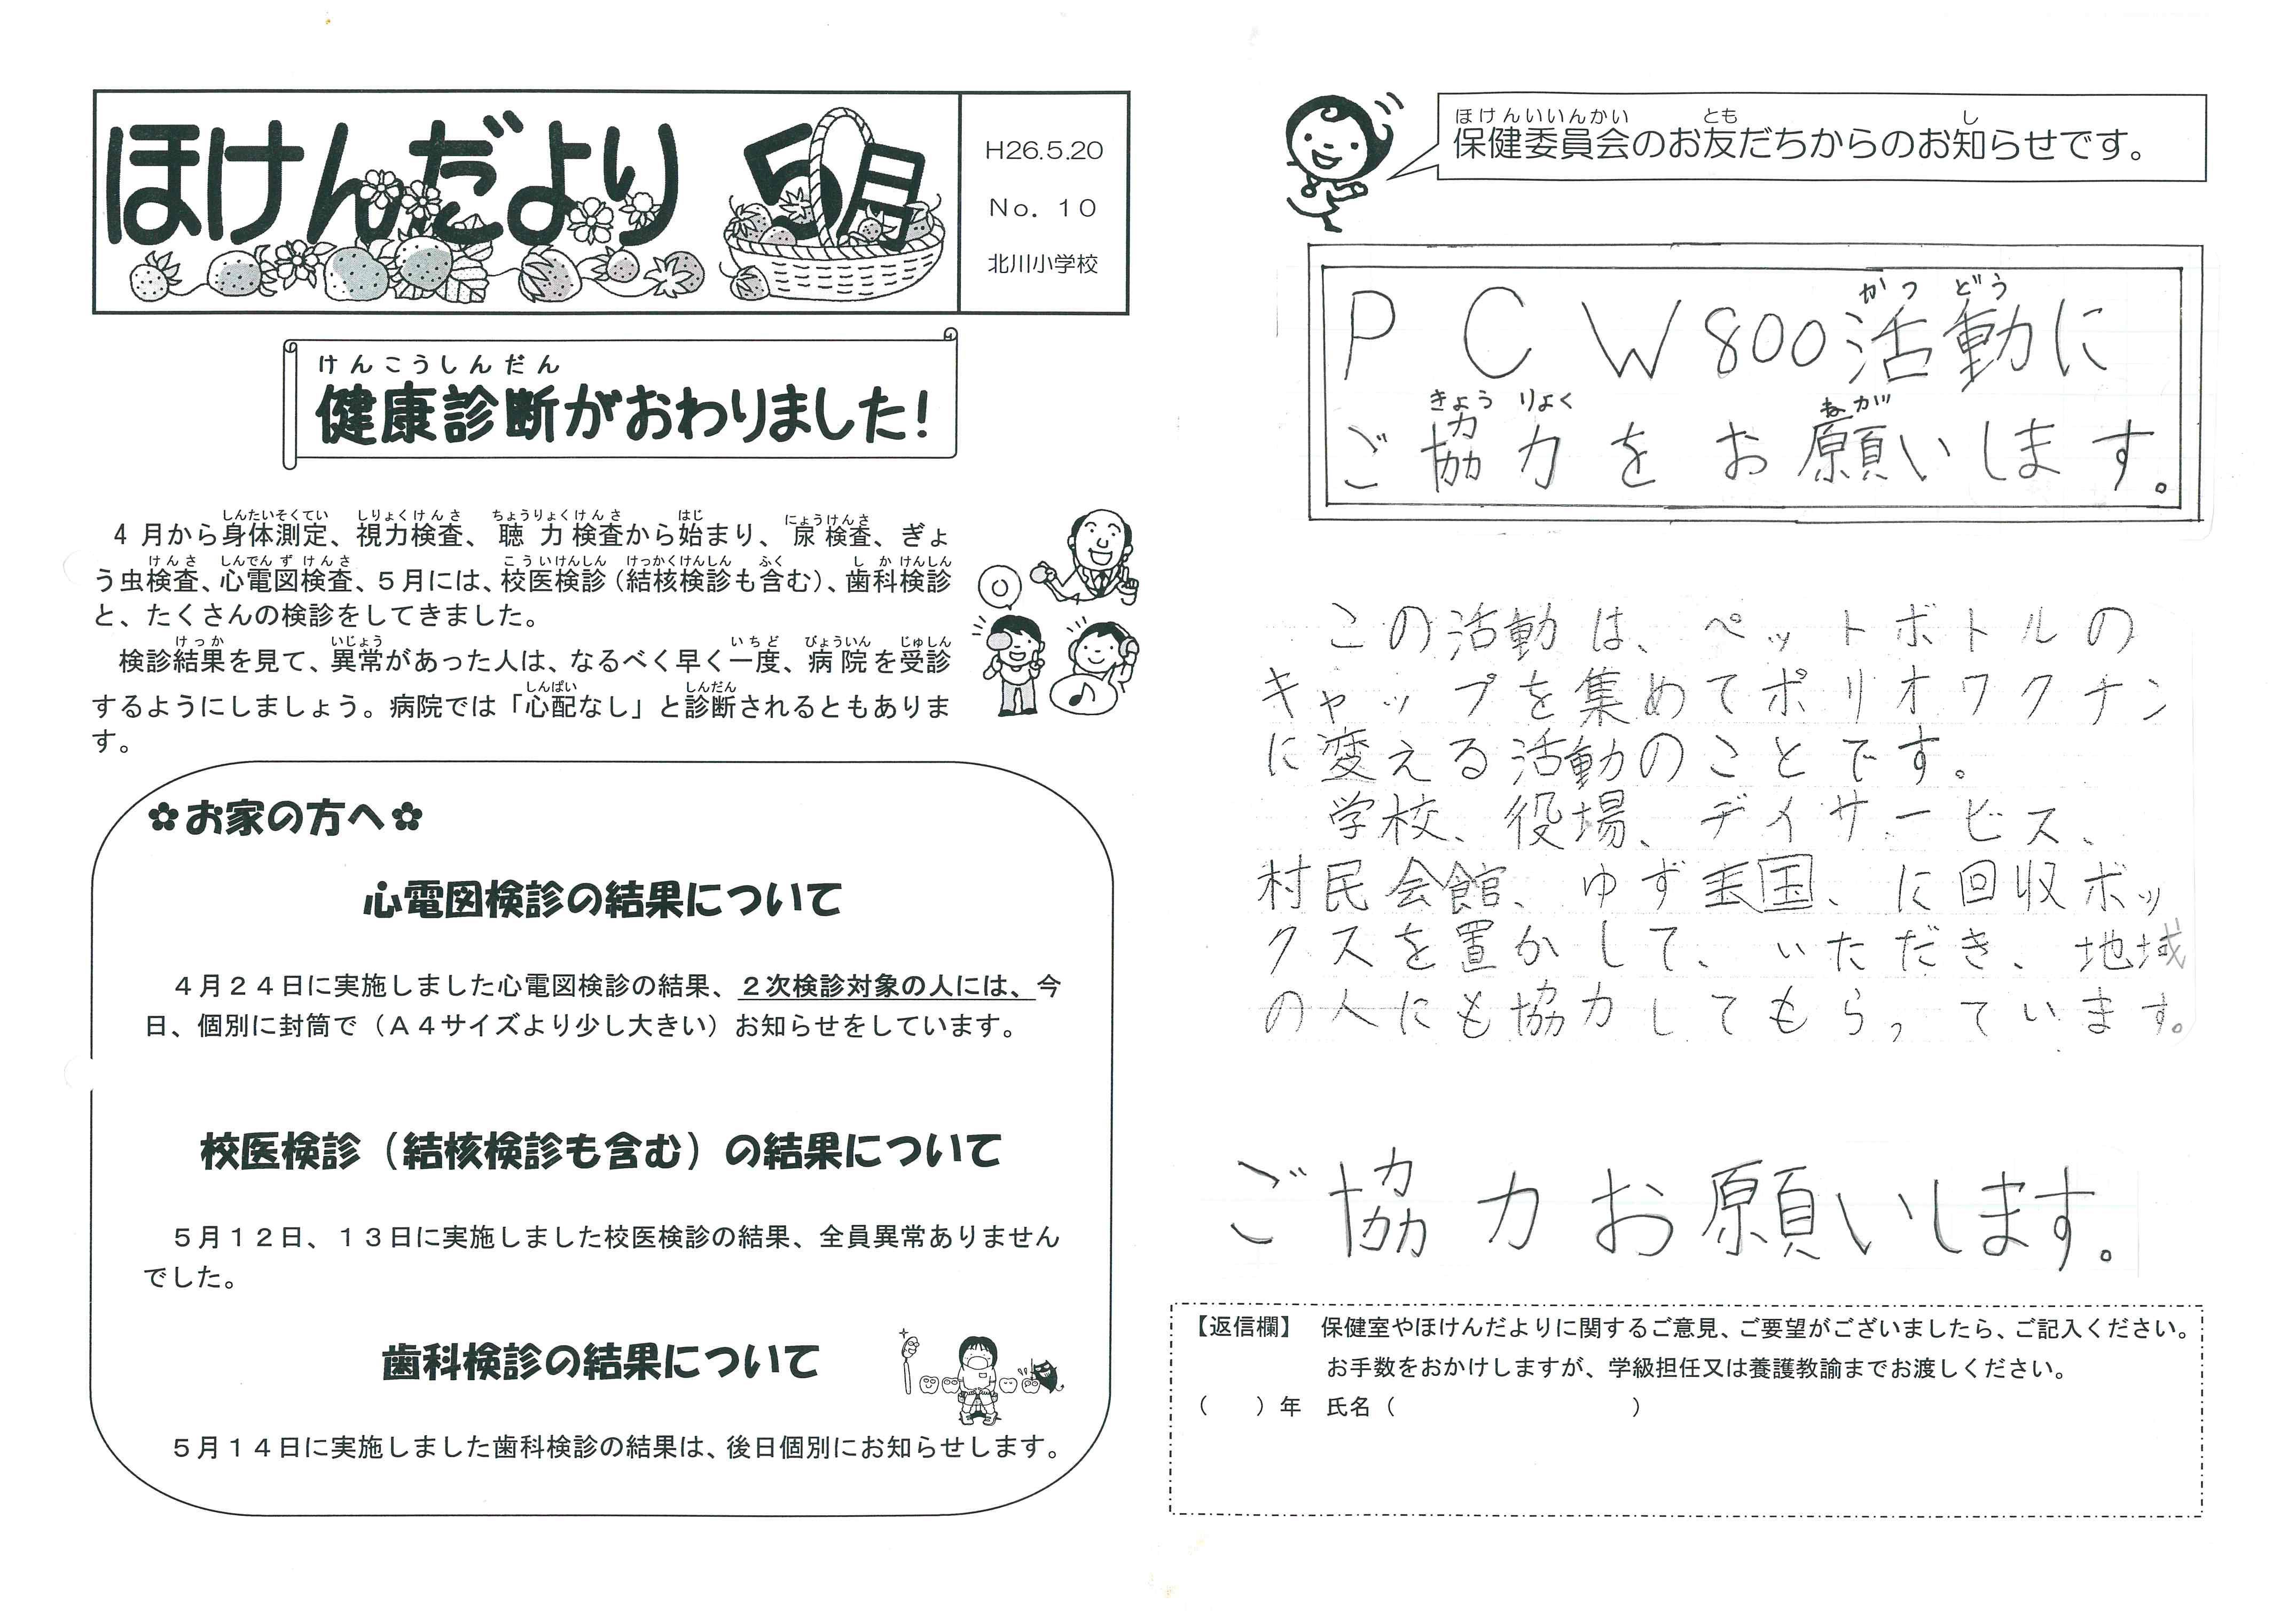 ほけんだより 5月
H26.5.20
No. 10
北川小学校
けんこうしんだん
健康診断がおわりました!
しんたいそくてい しりょくけんさ ちょうりょくけんさ はじ にょうけんさ
4月から身体測定、視力検査、聴力検査から始まり、尿検査、ぎょ
けんさ しんでんずけんさ こういけんしん けっかくけんしん ふく しかけんしん
う虫検査、心電図検査、5月には、校医検診(結核検診も含む)、歯科検診
と、たくさんの検診をしてきました。
けっか いじょう いちど びょういん じゅしん
検診結果を見て、異常があった人は、なるべく早く一度、病院を受診
しんぱい しんだん
するようにしましょう。病院では「心配なし」と診断されるともありま
す。
✿お家の方へ✿
心電図検診の結果について
4月24日に実施しました心電図検診の結果、2次検診対象の人には、今
日、個別に封筒で(A4サイズより少し大きい)お知らせをしています。
校医検診(結核検診も含む)の結果について
5月12日、13日に実施しました校医検診の結果、全員異常ありません
でした。
歯科検診の結果について
5月14日に実施しました歯科検診の結果は、後日個別にお知らせします。
ほけんいいんかい とも し
保健委員会のお友だちからのお知らせです。
かつ どう
PCW800活動に
きょう りょく ねが
ご協力をお願いします。
この活動は、ペットボトルの
キャップを集めてポリオワクチン
に変える活動のことです。
学校、役場、デイサービス、
村民会館、ゆず王国、に回収ボッ
クスを置かして、いただき、地域
の人にも協力してもらっています。
ご協力お願いします。
【返信欄】 保健室やほけんだよりに関するご意見、ご要望がございましたら、ご記入ください。
お手数をおかけしますが、学級担任又は養護教諭までお渡しください。
( )年 氏名( )